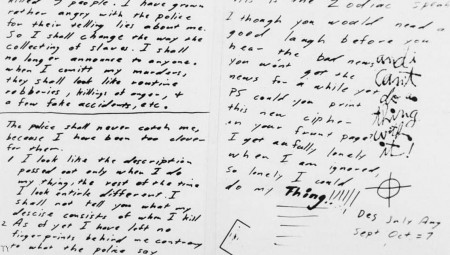 killed 7 people. I have grown
rather angry with the police
for their telling lies about me.
So I shall change the way the
collecting of slaves. I shall
no longer announce to anyone.
when I comitt my murders,
they shall look like routine
robberies, killings of anger, +
a few fake accidents, etc.
The police shall never catch me,
because I have been too clever
for them.
1 I look like the description
passed out only when I do
my thing, the rest of the time
I look entirle different. I
shall not tell you what my
descise consists of when I kill
2 As of yet I have left no
fingerprints behind me contrary
to what the police say
This is the Zodiac speak
I though you would need a
good laugh before you
hear the bad news
you won't get the
news for a while yet
PS could you print
this new cipher
on your frunt page?
I get awfully lonely
when I am ignored,
so lonely I could
do my Thing!!!!!!
and i
cant
do a
thing
with
it!
Des July Aug
Sept Oct = 7